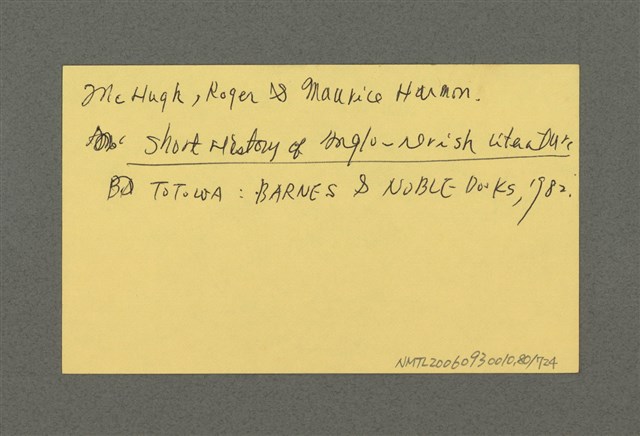 McHugh, Roger & Maurice Harmon.
Short History of Anglo-Irish Literature
TOTOWA: BARNES & NOBLE Books, 1982.
NMTL20060930010.80/724